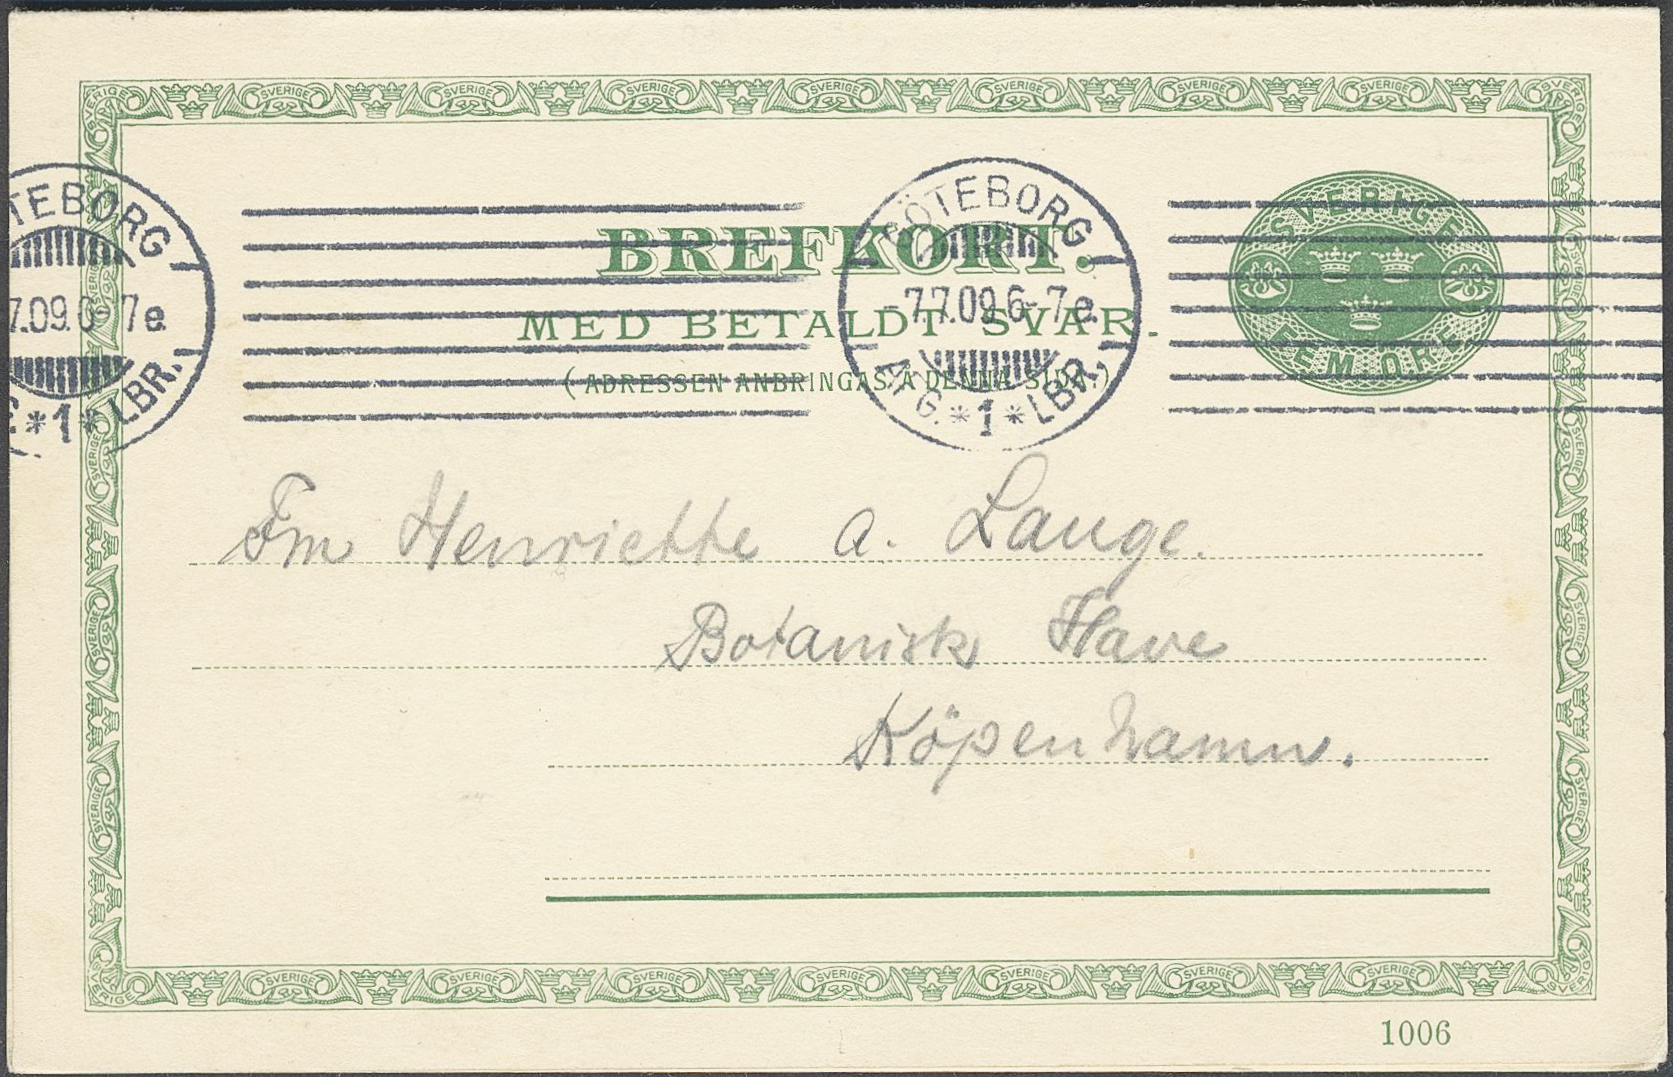 BREFKORT.
MED BETALDT SVAR.
(ADRESSEN ANBRINGAS Å DENNA SIDA.)
SVERIGE
FEM ÖRE
GÖTEBORG
7.7.09. 6-7e.
AFG. *1* LBR.
TEBORG
7.09. 6-7e.
*1* LBR.
Henriette a. Lange.
Botanisk Have
Köpenhamn.
1006